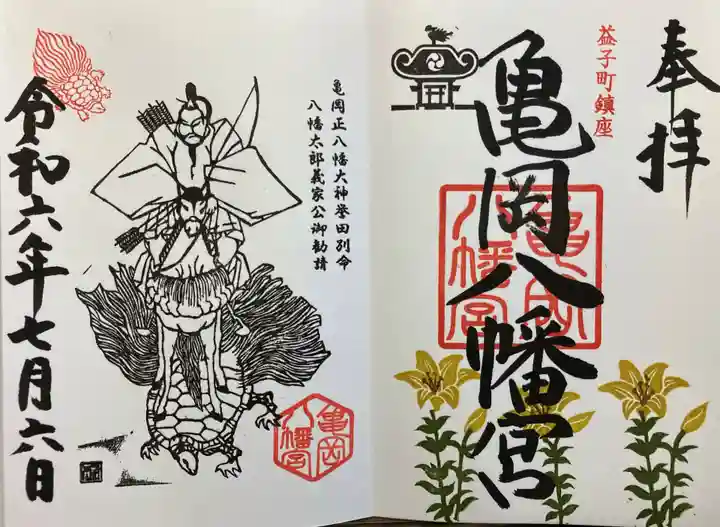 奉拝
益子町鎮座
亀岡八幡宮
亀岡
八幡宮
亀岡正八幡大神誉田別命
八幡太郎義家公御勧請
令和六年七月六日
亀岡
八幡宮